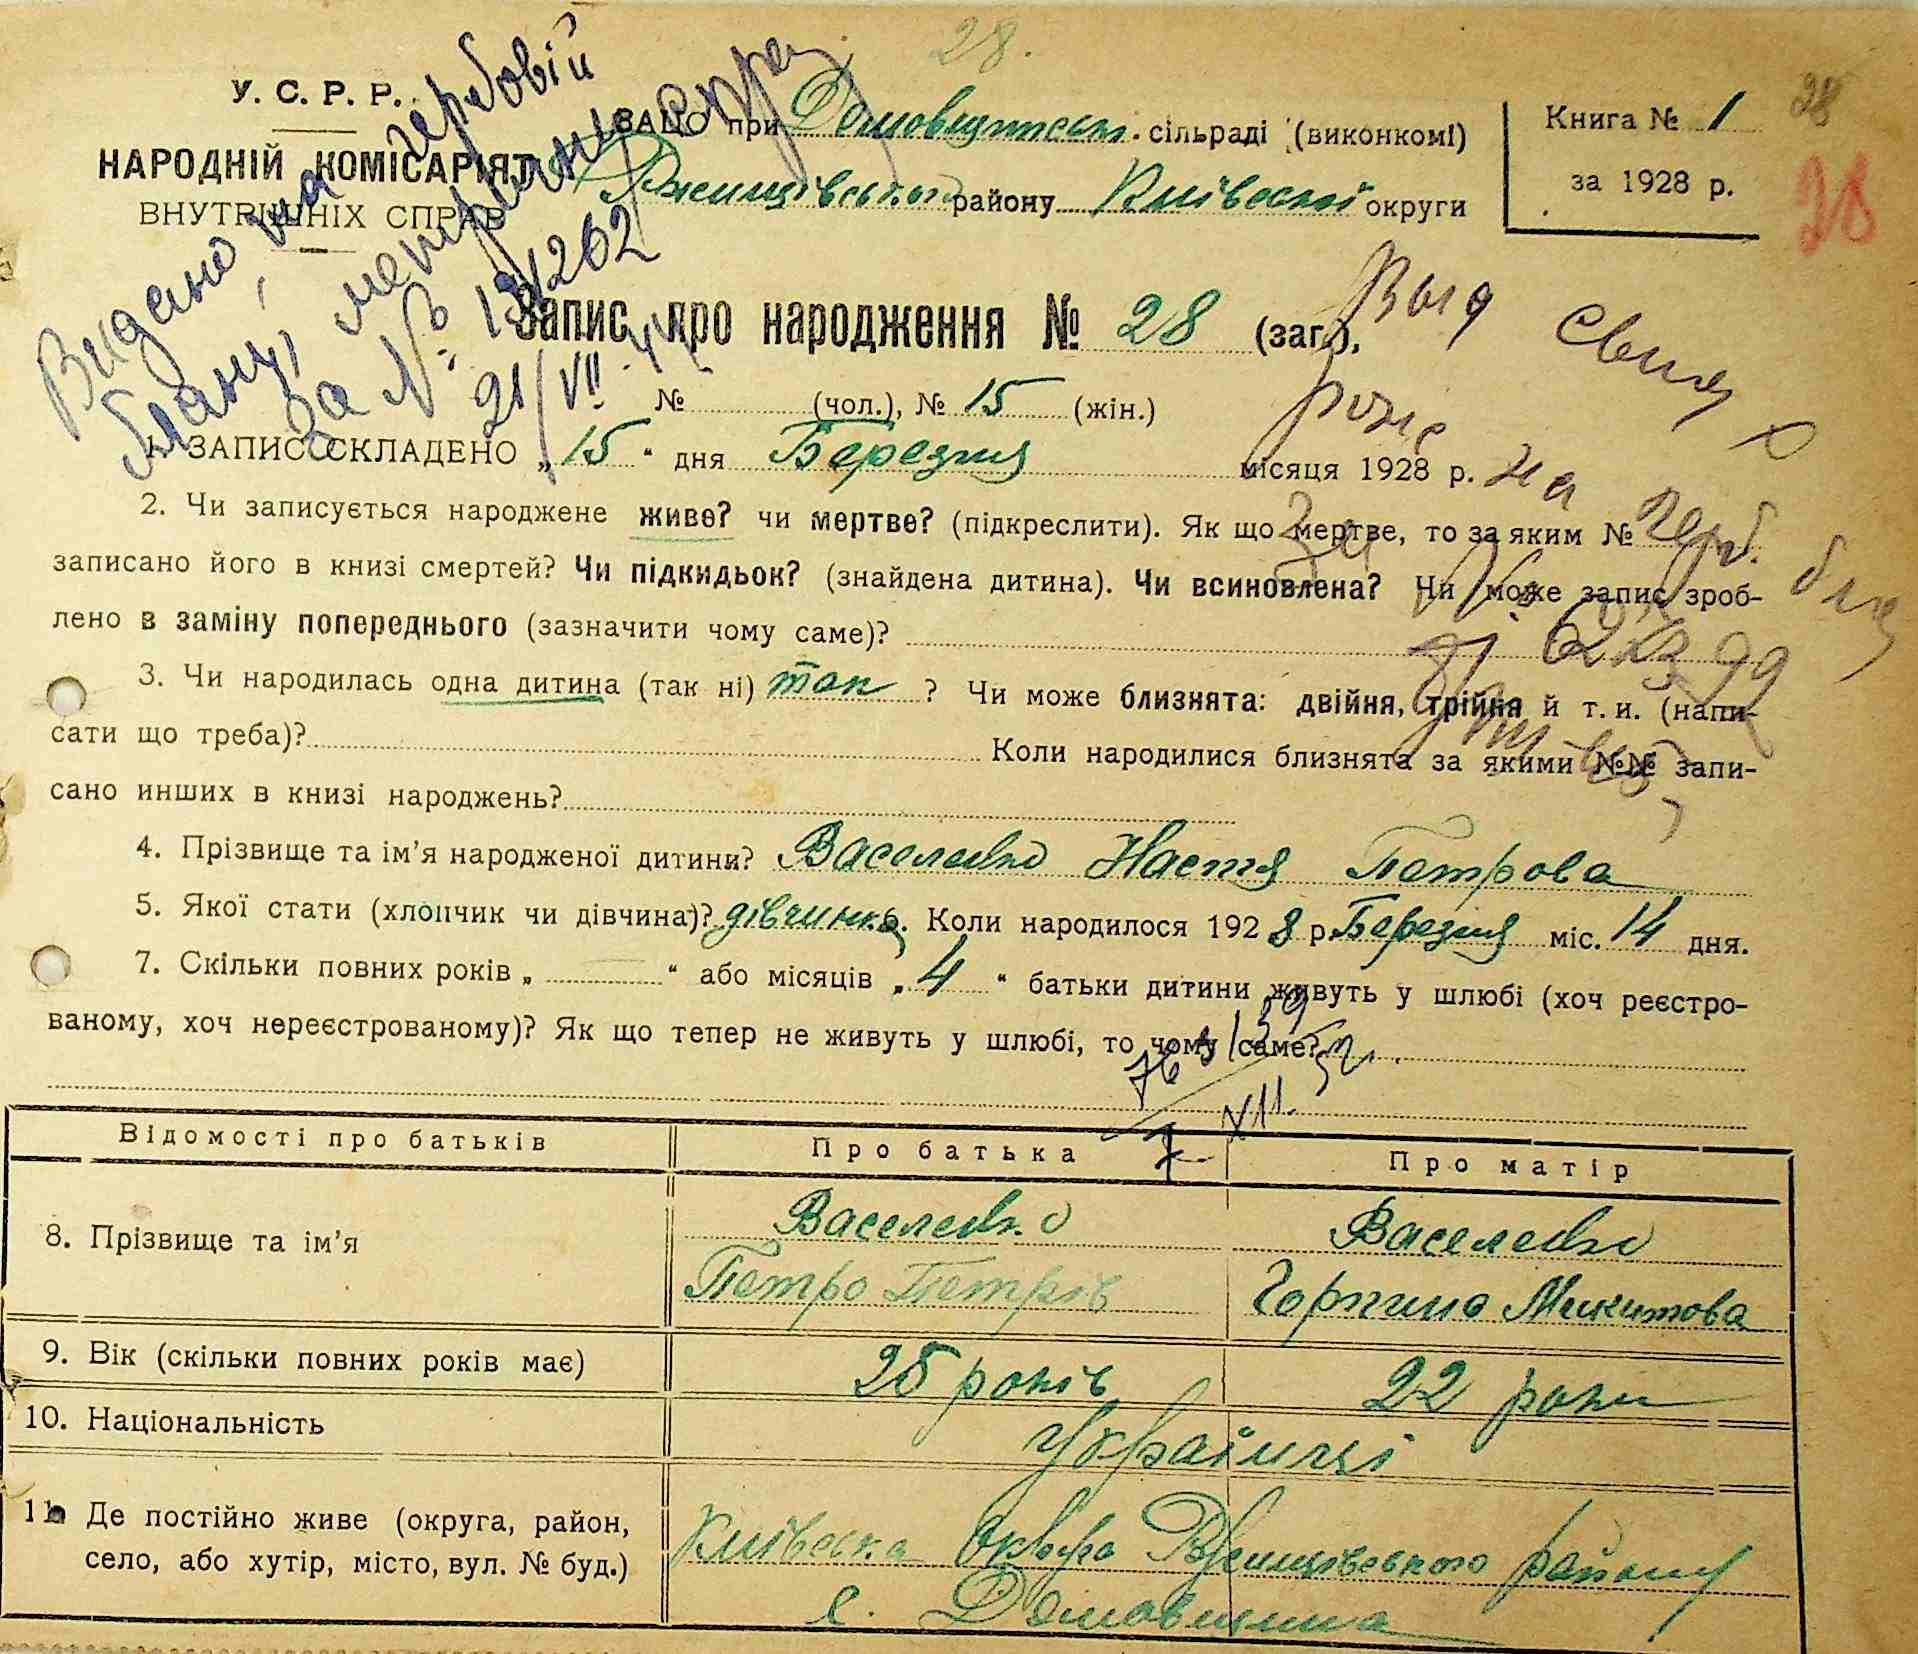 28.
У. С. Р. Р.
НАРОДНІЙ КОМІСАРІЯТ
ВНУТРІШНІХ СПРАВ
ЗАЦС при сільраді (виконкомі)
Ржищівського району Київської округи
Книга № 1
за 1928 р.
28
28
Видано на гербовій
за № 131262
21/VII
Запис про народження № 28 (заг.),
№ (чол.), № 15 (жін.)
1. ЗАПИС СКЛАДЕНО „15“ дня Березня місяця 1928 р.
Выд
на герб.
2. Чи записується народжене живе? чи мертве? (підкреслити). Як що мертве, то за яким №
записано його в книзі смертей? Чи підкидьок? (знайдена дитина). Чи всиновлена? Чи може запис зроб-
лено в заміну попереднього (зазначити чому саме)?
3. Чи народилась одна дитина (так ні) так ? Чи може близнята: двійня, трійня й т. и. (напи-
сати що треба)? Коли народилися близнята за якими №№ запи-
сано инших в книзі народжень?
4. Прізвище та ім'я народженої дитини? Васелевко Настя Петрова
5. Якої стати (хлопчик чи дівчина)? дівчинка 6. Коли народилося 1928 р. Березня міс. 14 дня.
7. Скільки повних років „ “ або місяців „4“ батьки дитини живуть у шлюбі (хоч реєстро-
ваному, хоч нереєстрованому)? Як що тепер не живуть у шлюбі, то чому саме?
Відомості про батьків Про батька Про матір
8. Прізвище та ім'я Васелевко Васелевко
Петро Петрів Горпина Микитова
9. Вік (скільки повних років має) 25 років 22 роки
10. Національність Українці
11. Де постійно живе (округа, район, Київська Округа Ржищівського району
село, або хутір, місто, вул. № буд.) с.